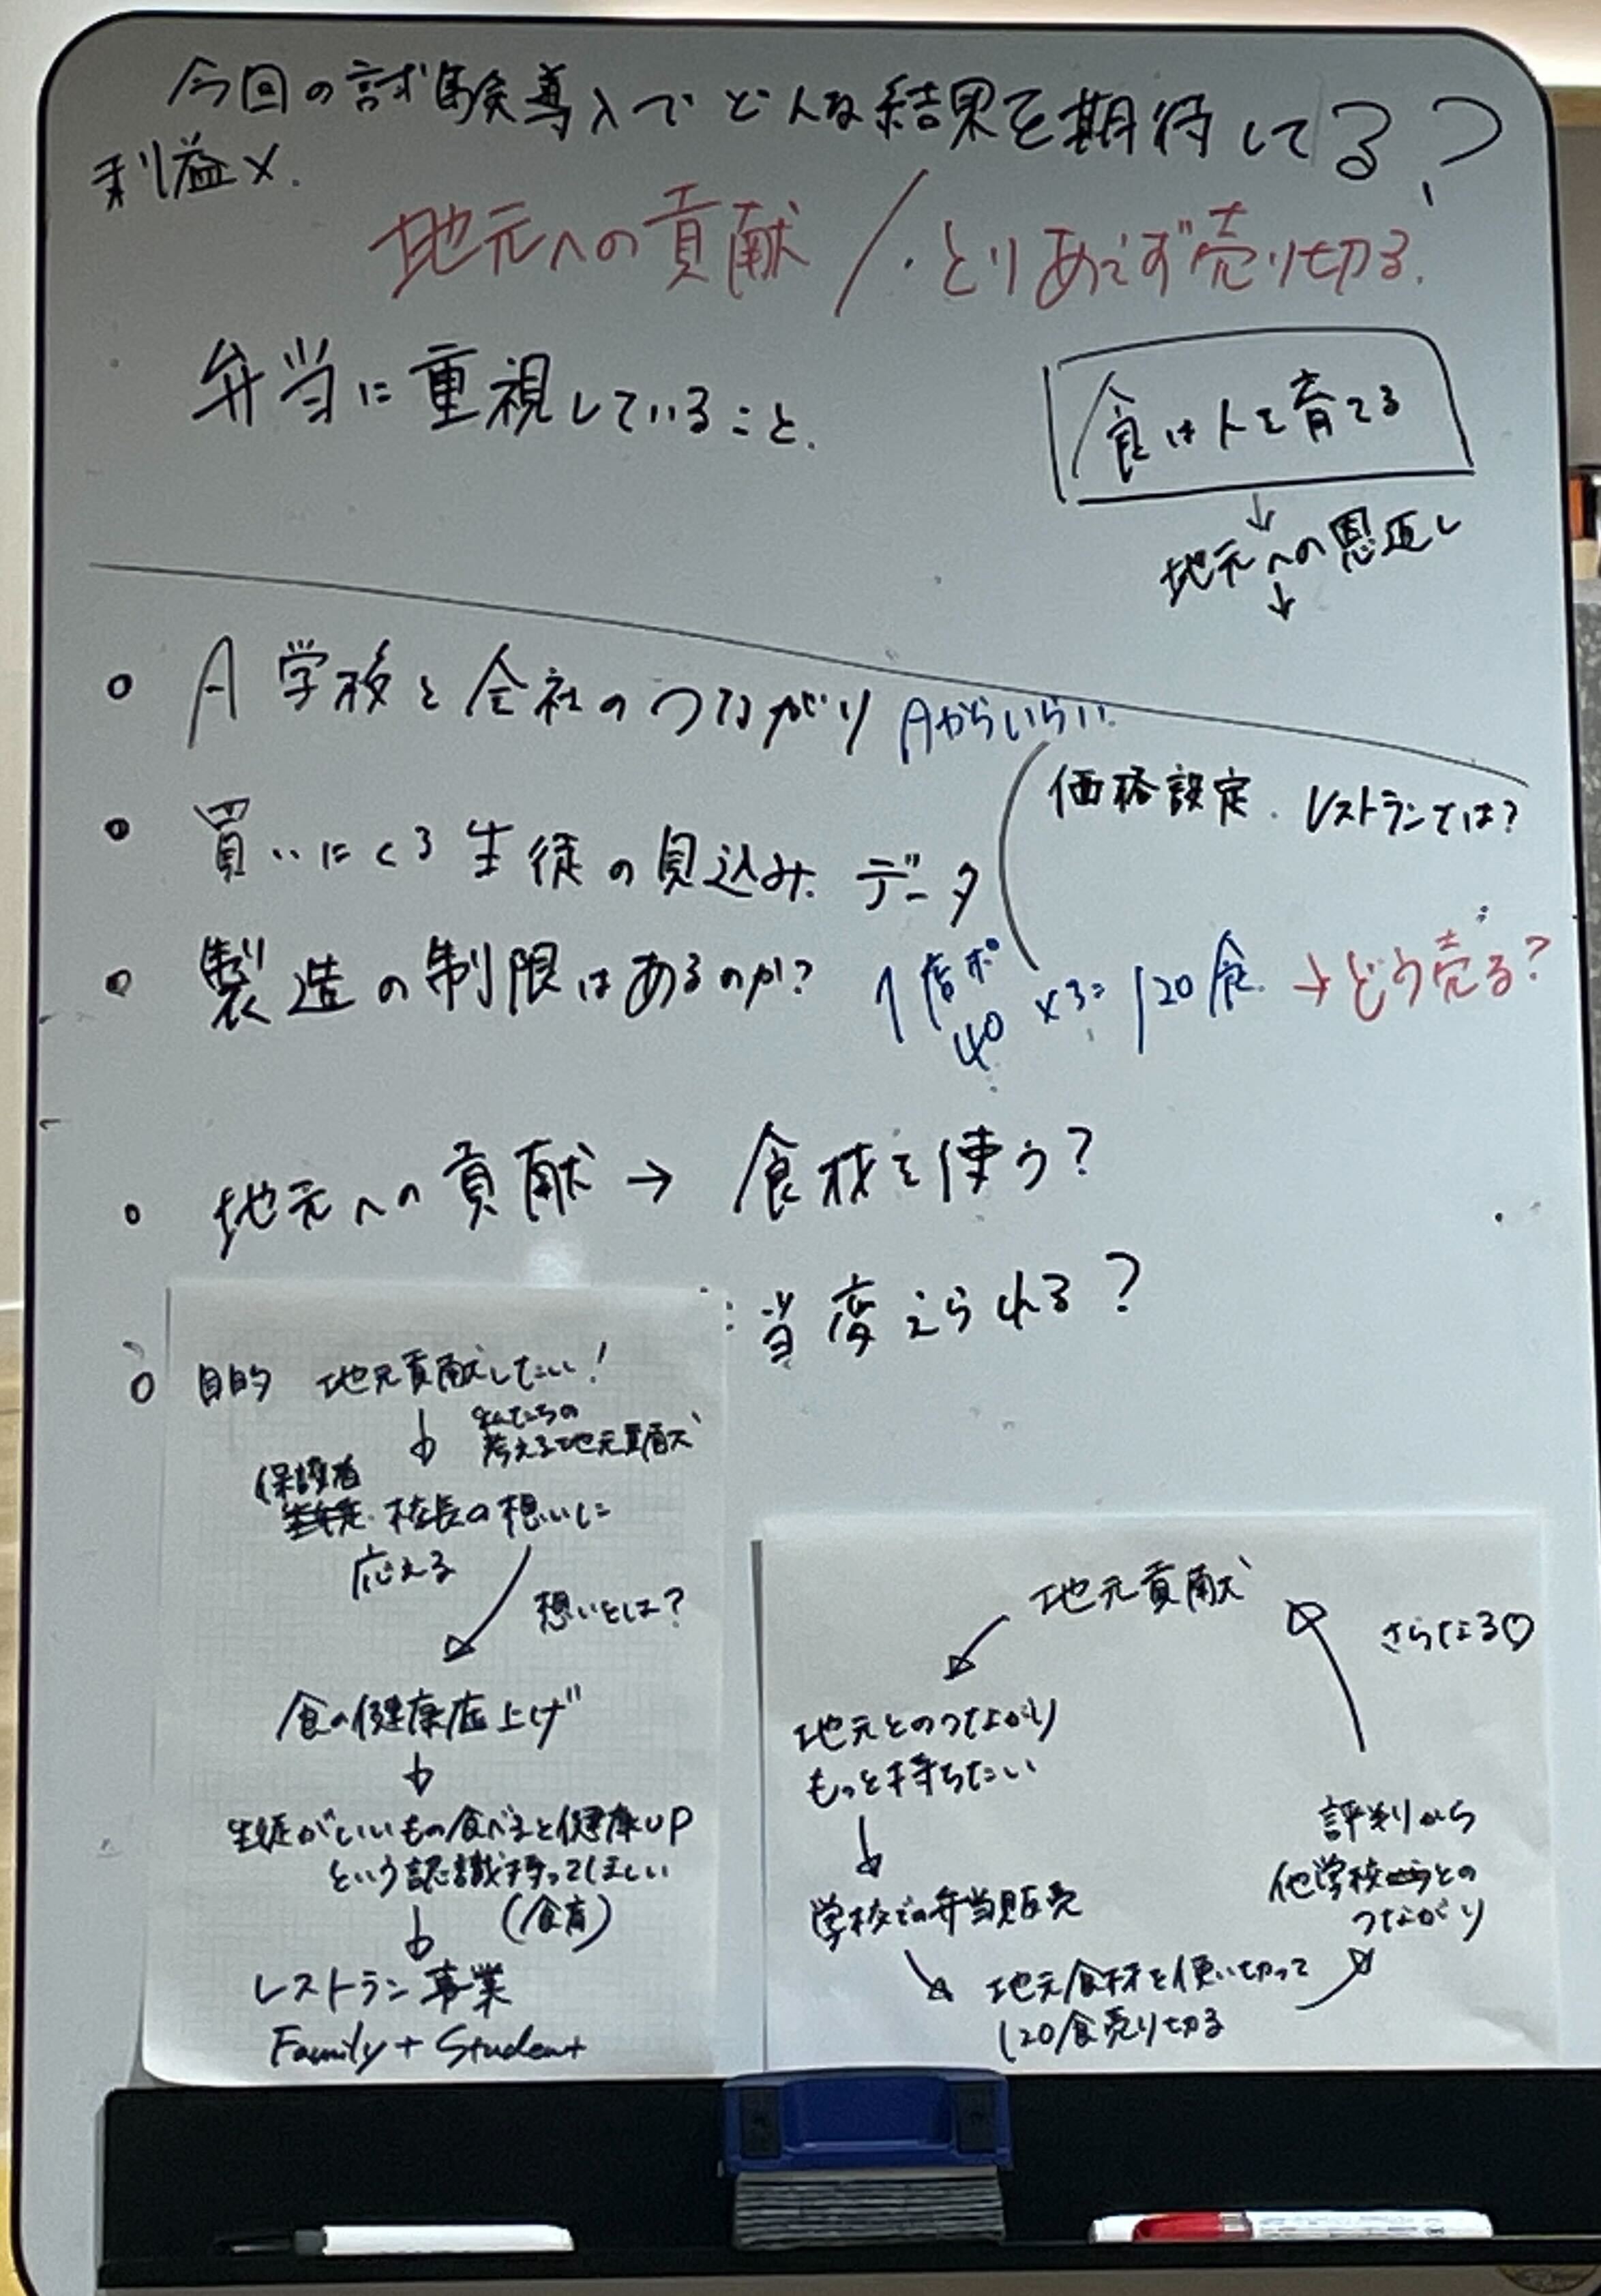 今回の試験導入でどんな結果を期待してる?
利益×.
地元への貢献/・とりあえず売り切る.
弁当に重視していること.
食は人を育てる
↓
地元への恩返し
↓
○ A学校と会社のつながり Aからいらい
価格設定. レストランでは?
○ 買いにくる生徒の見込み. データ
○ 製造の制限はあるのか? 1店ポ 40 ×3= 120食. →どう売る?
○ 地元への貢献 → 食材を使う?
当変えられる?
○ 目的 地元貢献したい!
↓ 私たちの
考える地元貢献
保護者
校長の想いに
応える
想いとは?
食の健康底上げ
↓
生徒がいいもの食べると健康UP
という認識持ってほしい
(食育)
↓
レストラン事業
Family + Student
地元貢献
さらなる♡
地元とのつながり
もっと持ちたい
↓
学校での弁当販売
地元食材を使い切って
120食売り切る
評判から
他学校との
つながり